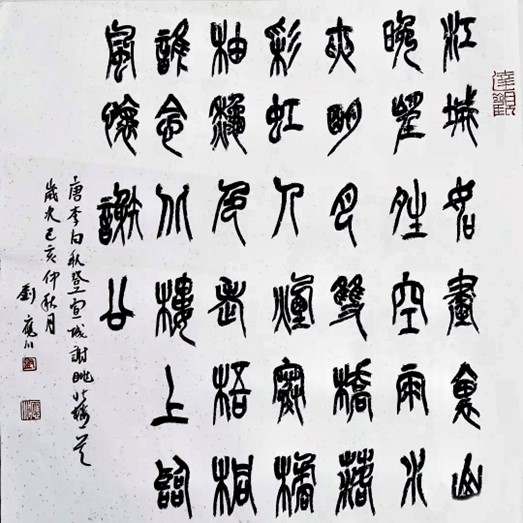 達觀
江城如畫裏山
晚望晴空兩水
夾明鏡雙橋落
彩虹人煙寒橘
柚秋色老梧桐
誰念北樓上臨
風懷謝公
唐李白秋登宣城謝朓北樓
歲次己亥仲秋月
劉應川